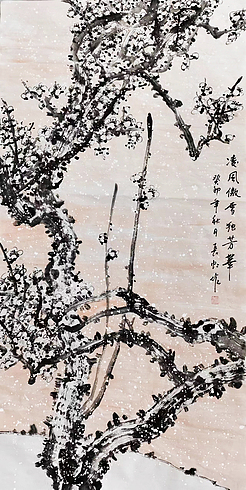 凌风傲雪独芳华
癸卯年秋月